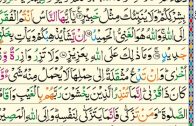 بِشِرْكِكُمْ وَلَا يُنَبِّئُكَ مِثْلُ خَبِيرٍ يَا أَيُّهَا النَّاسُ أَنْتُمُ الْفُقَرَاءُ
إِلَى اللَّهِ وَاللَّهُ هُوَ الْغَنِيُّ الْحَمِيدُ إِنْ يَشَأْ يُذْهِبْكُمْ وَيَأْتِ بِخَلْقٍ
جَدِيدٍ وَمَا ذَلِكَ عَلَى اللَّهِ بِعَزِيزٍ وَلَا تَزِرُ وَازِرَةٌ وِزْرَ
أُخْرَى وَإِنْ تَدْعُ مُثْقَلَةٌ إِلَى حِمْلِهَا لَا يُحْمَلْ مِنْهُ شَيْءٌ وَلَوْ
كَانَ ذَا قُرْبَى إِنَّمَا تُنْذِرُ الَّذِينَ يَخْشَوْنَ رَبَّهُمْ بِالْغَيْبِ
وَمَنْ تَزَكَّى فَإِنَّمَا يَتَزَكَّى لِنَفْسِهِ وَإِلَى اللَّهِ الْمَصِيرُ